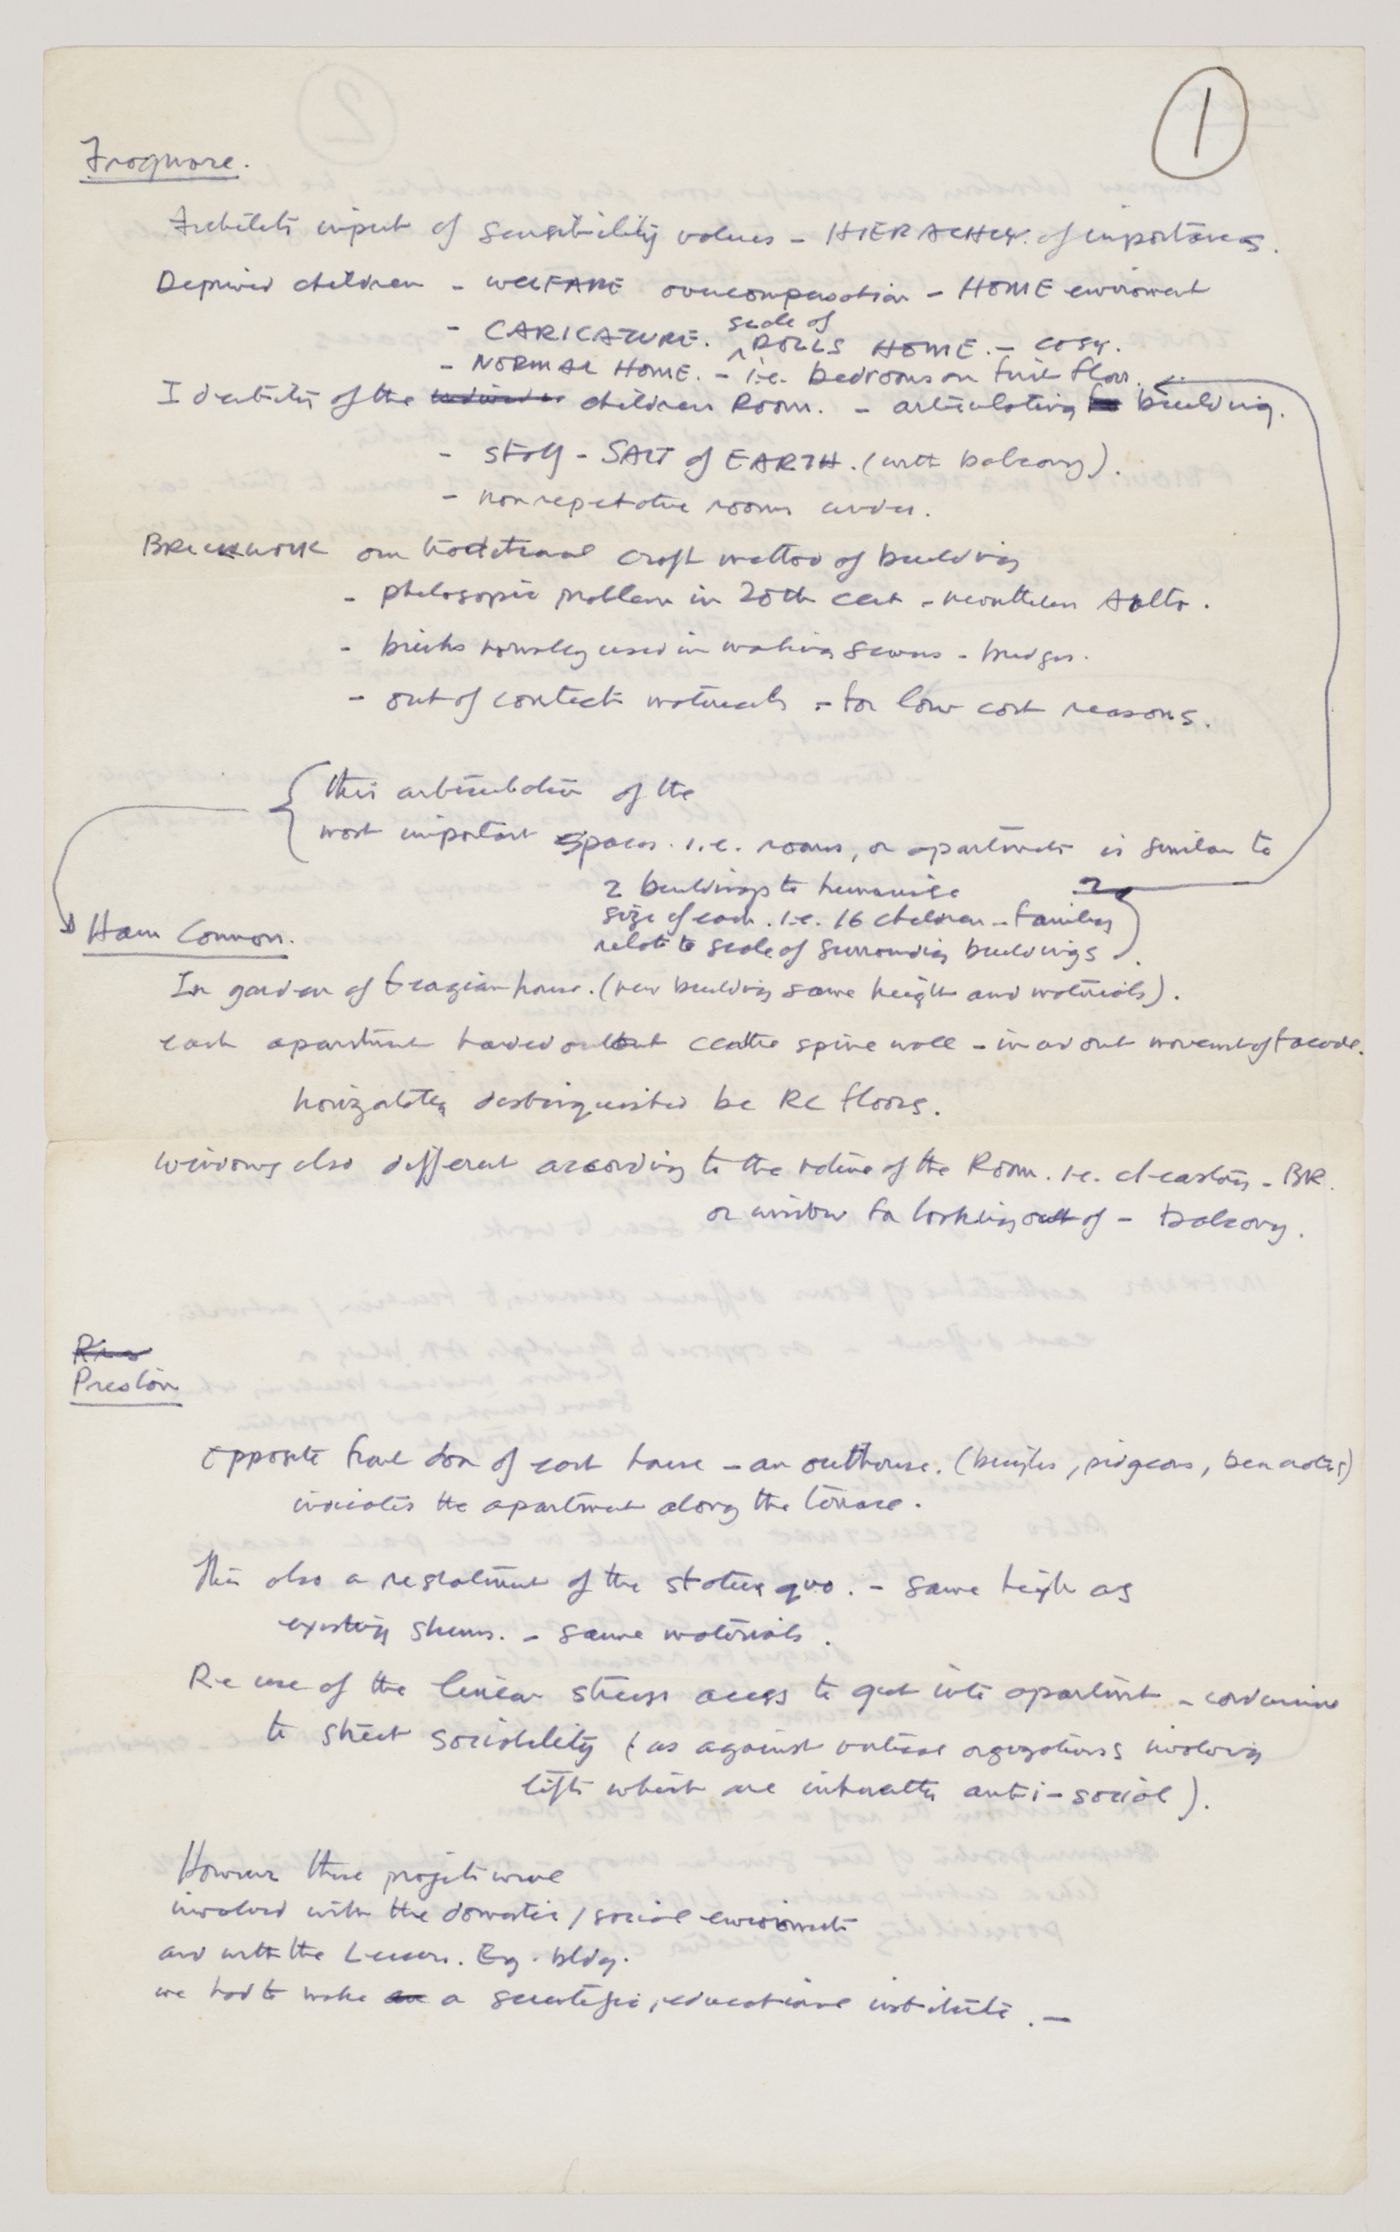 1
Frogmore.
Architects input of sensibility values - HIERACHEY. of importances.
Deprived children - WELFARE overcompensation - HOME enviroment
- CARICATURE. scale of DOLLS HOME. - cosy.
- NORMAL HOME. - i.e. bedrooms on first floor.
Identity of the children Room. - articulating building.
- staff - SALT of EARTH. (with balcony).
- non repetative rooms under.
BRICKWORK our traditional craft method of building
- philosopic problem in 20th cent - neanderthal Aalto.
- bricks normally used in making sewers - bridges.
- out of context materials - for low cost reasons.
this articulation of the
most important spaces. i.e. rooms, or apartments is similar to
2 buildings to humanise
size of each. i.e. 16 children - families
relate to scale of surrounding buildings.
Ham Common.
In garden of Georgian house. (new building same height and materials).
each apartment handed about centre spine wall - in and out movement of facade.
horizontally distinguished be RC floors.
Windows also different according to the nature of the Room. i.e. cleastory - BR.
or window for looking out of - balcony.
Preston
Opposite front door of each house - an outhouse. (bicycles, pidgeons, ben acters)
indicates the apartment along the terrace.
This also a restatment of the status quo. - same heigh as
existing slums. - same materials.
Re use of the linear street access to get into apartment - conducive
to street sociability (as against vertical organizations involving
lifts which are inherently anti-social).
However these projects were
involved with the domestic / social enviroment
and with the Leices. Eng. bldg.
we had to make a scientific, educational institute. -